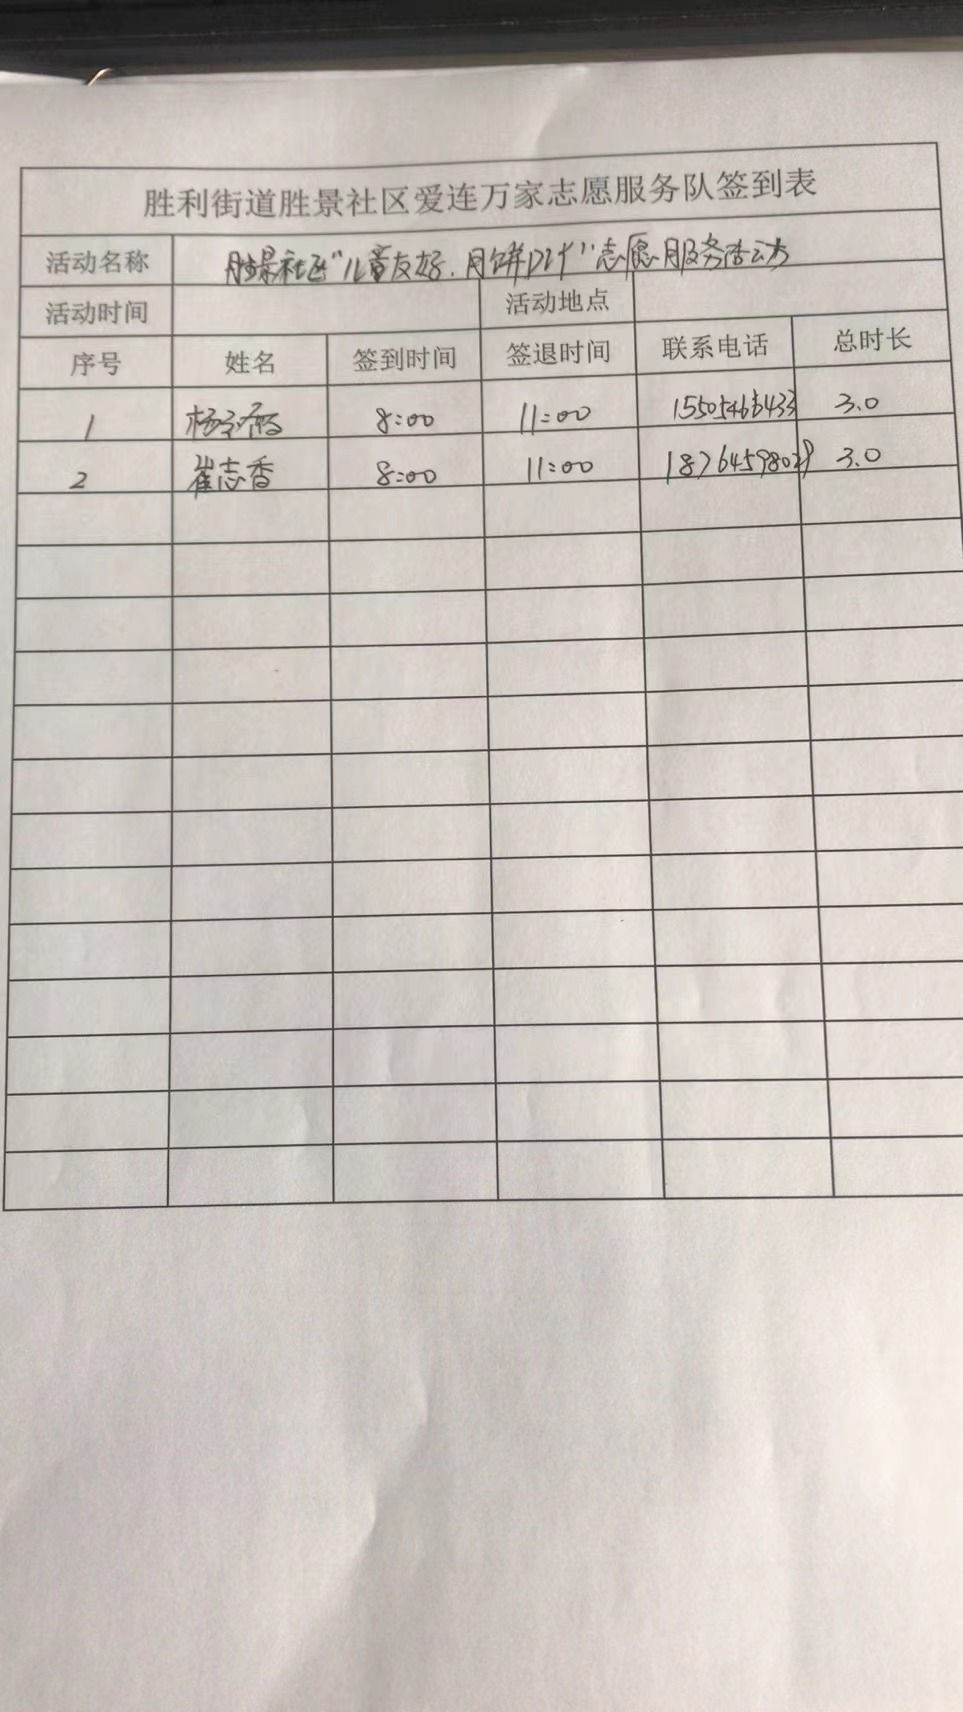 胜利街道胜景社区爱连万家志愿服务队签到表
活动名称 胜景社区"儿童友好.月饼DIY"志愿服务活动
活动时间 活动地点
序号 姓名 签到时间 签退时间 联系电话 总时长
1 杨 8:00 11:00 3.0
2 崔志香 8:00 11:00 18764598029 3.0